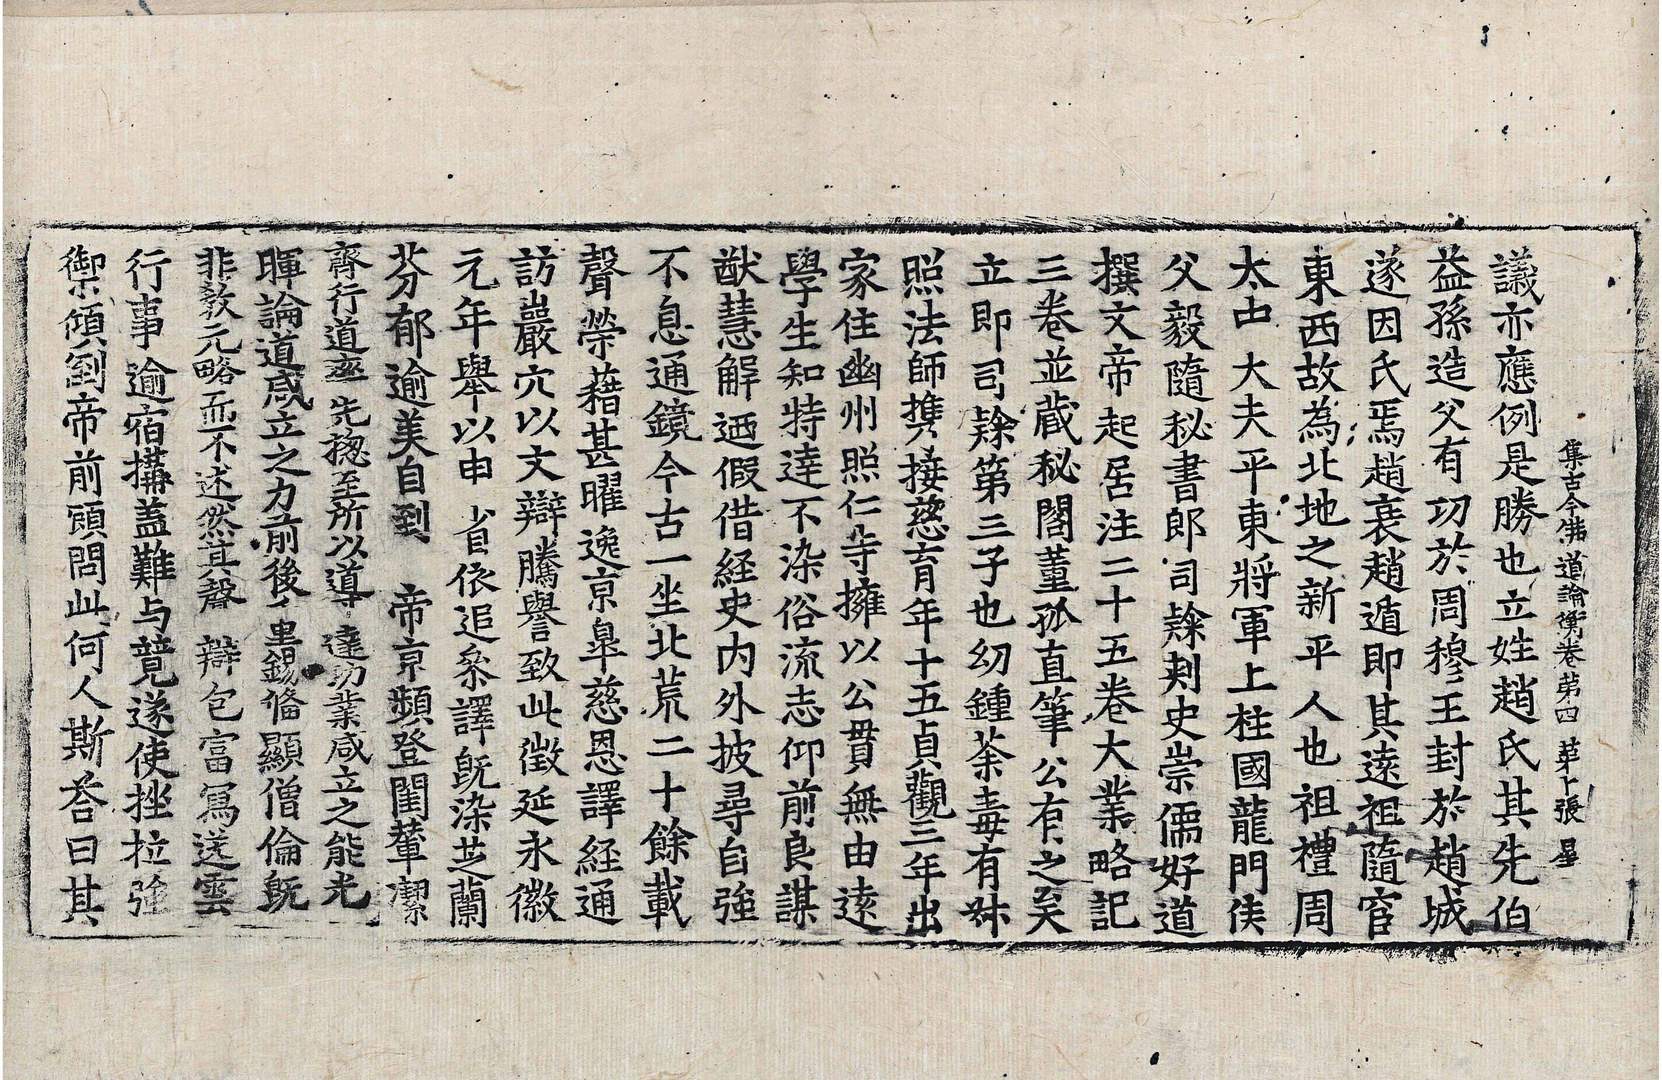 集古今佛道論衡卷第四 第十張 星
議亦應例是勝也立姓趙氏其先伯
益孫造父有功於周穆王封於趙城
遂因氏焉趙衰趙遁即其遠祖隨官
東西故為北地之新平人也祖禮周
太中大夫平東將軍上柱國龍門侯
父毅隨秘書郎司隸刺史崇儒好道
撰文帝起居注二十五卷大業略記
三卷並藏秘閣董孤直筆公有之矣
立即司隸第三子也幼鍾荼毒有姊
照法師携接慈育年十五貞觀三年出
家住幽州照仁寺擁以公貫無由遠
學生知特達不染俗流志仰前良謀
猷慧解迺假借経史内外披尋自強
不息通鏡今古一坐北荒二十餘載
聲榮藉甚曜逸京皐慈恩譯経通
訪巖穴以文辯騰譽致此徵延永徽
元年舉以申省依追叅譯既染芝蘭
芬郁逾美自到帝京頻登闈輦潔
齊行道座先揔至所以導達功業咸立之能光
暉論道咸立之力前後重錫偹顯僧倫既
非教元略而不述然其聲辯包富寫送雲
行事逾宿搆盖難与競遂使挫拉強
禦傾劉帝前頋問此何人斯荅曰其